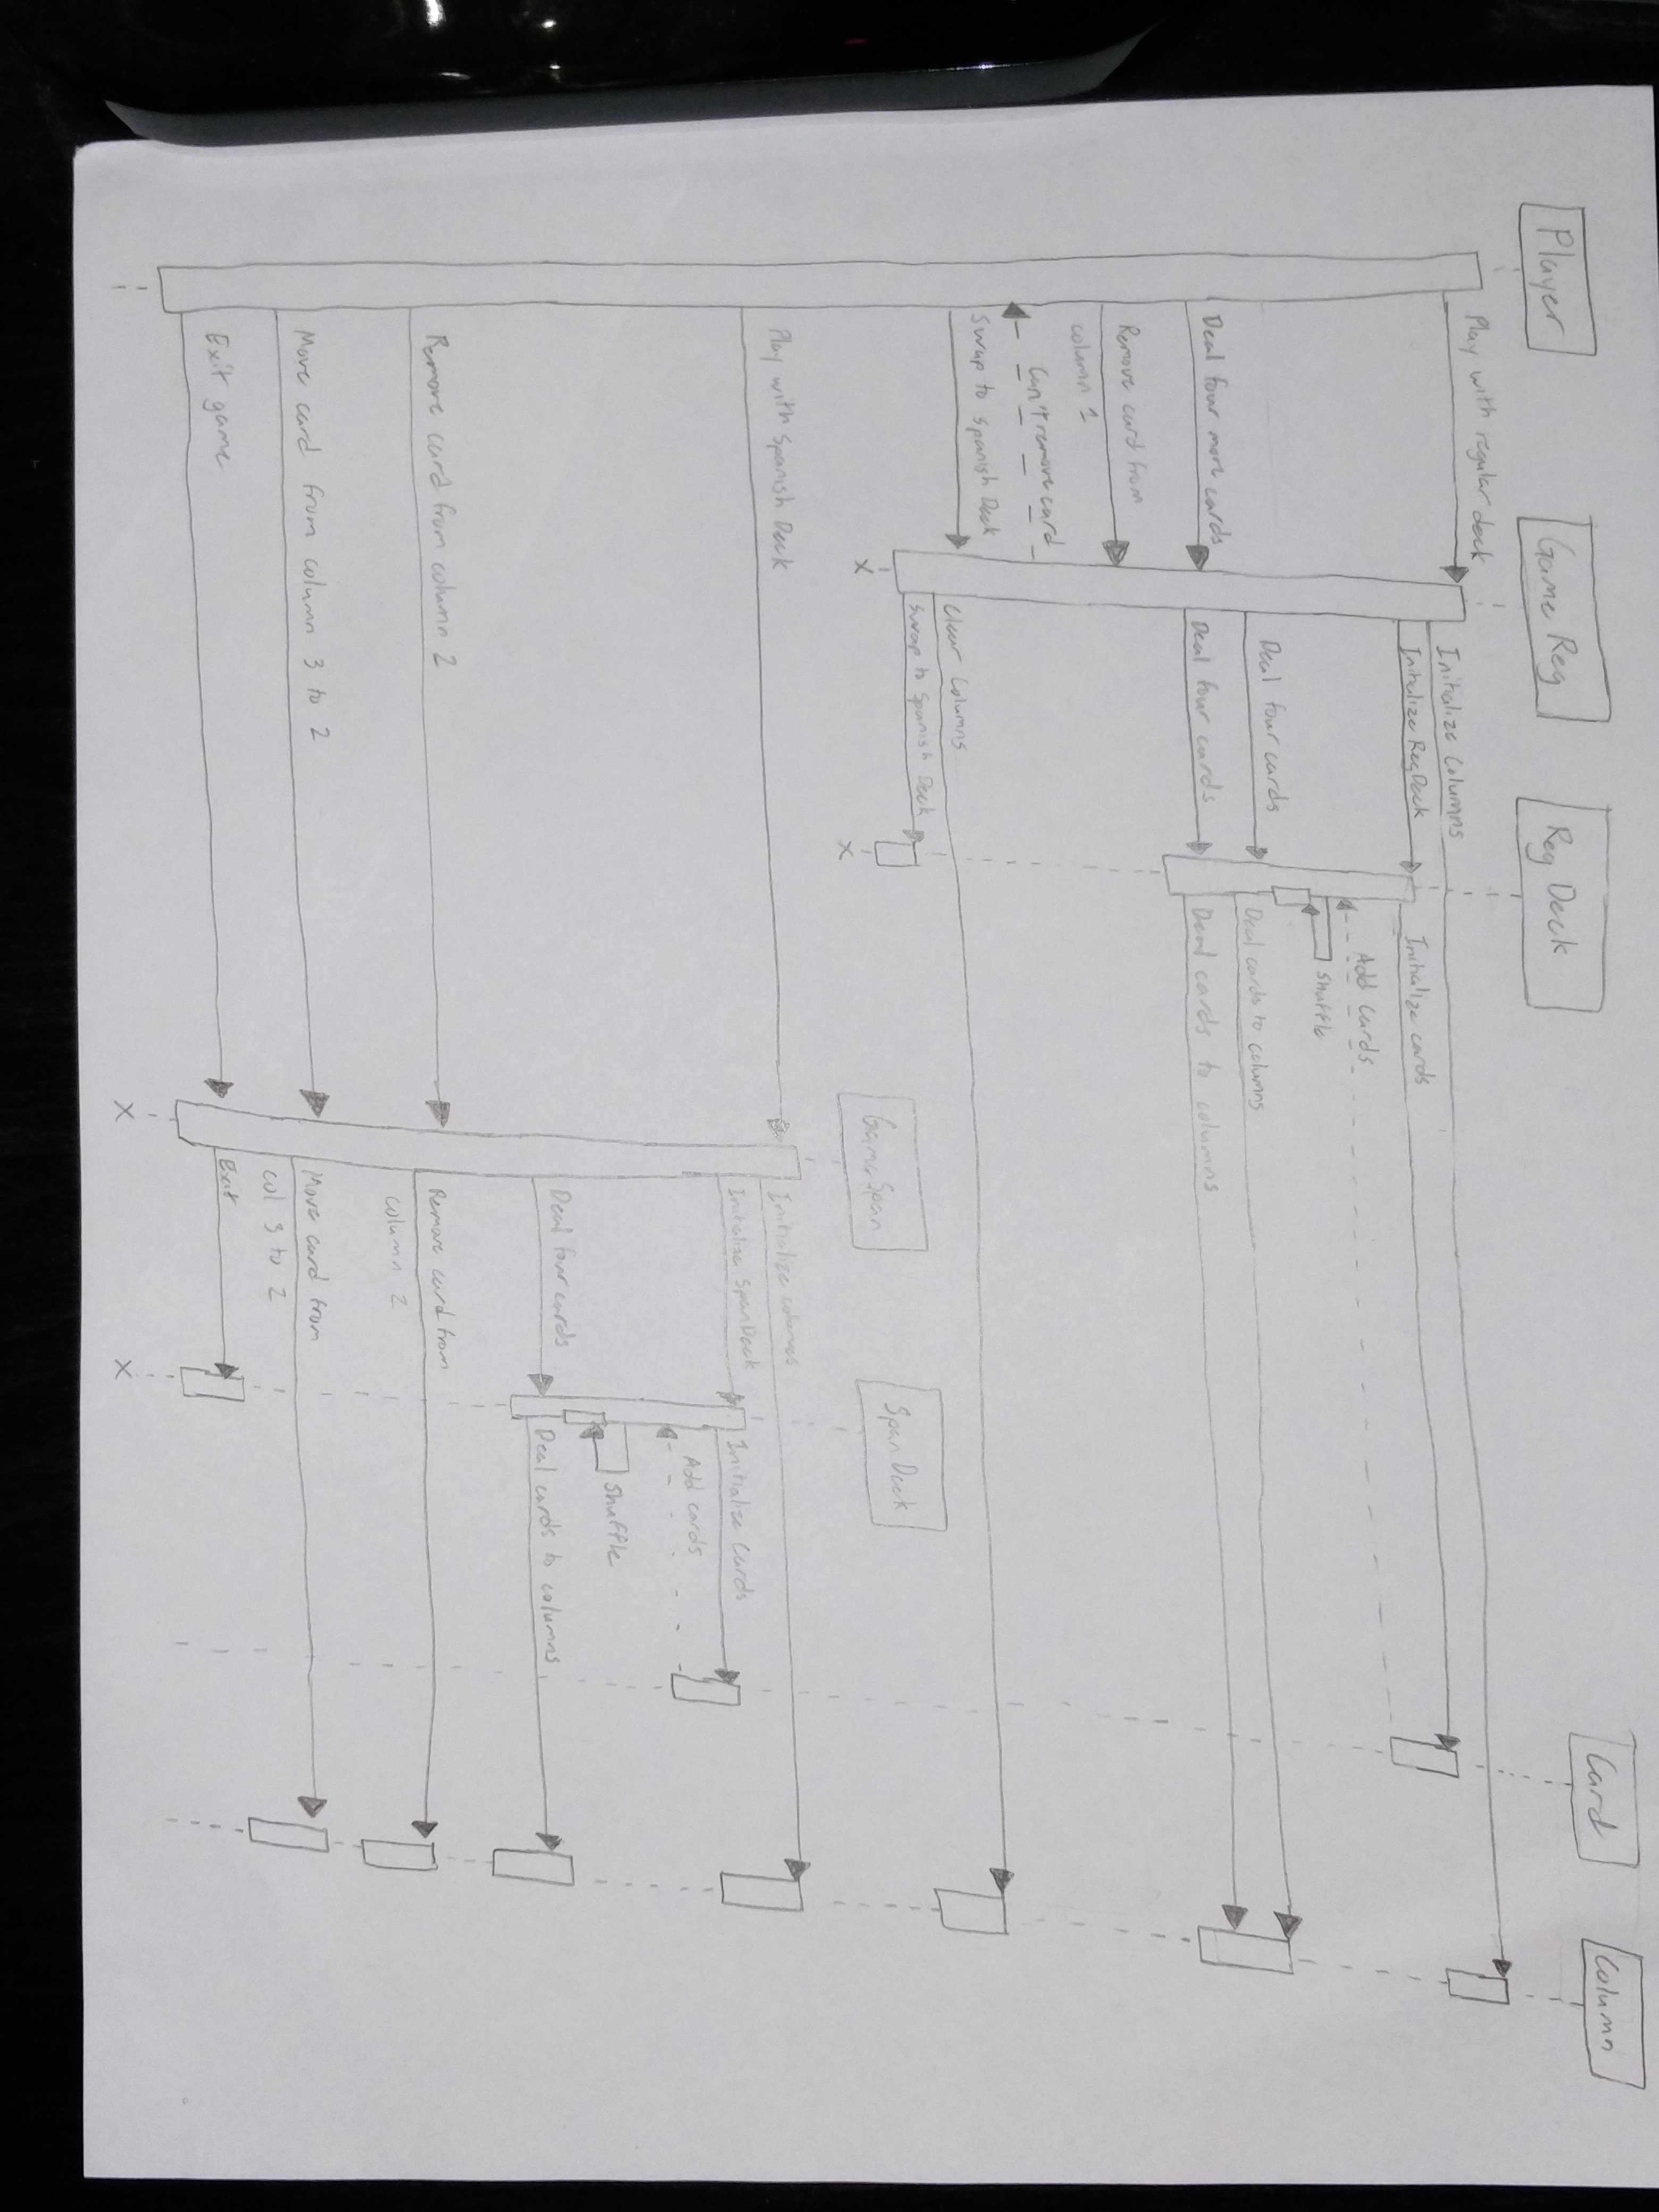 Player
Game Reg
Reg Deck
Card
Column
Play with regular deck
Initialize Columns
Initialize RegDeck
Initialize cards
Add Cards
Shuffle
Deal four cards
Deal cards to columns
Deal four more cards
Deal four cards
Deal cards to columns
Remove card from
column 1
Can't remove card
Swap to Spanish Deck
Clear Columns
Swap to Spanish Deck
X
X
Game Span
Span Deck
Play with Spanish Deck
Initialize columns
Initialize SpanDeck
Initialize Cards
Add cards
Shuffle
Deal four cards
Deal cards to columns
Remove card from column 2
Remove card from
column 2
Move card from column 3 to 2
Move card from
col 3 to 2
Exit game
Exit
X
X